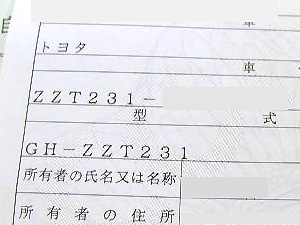 トヨタ
車
ZZT231-
型 式
GH-ZZT231
所有者の氏名又は名称
所有者の住所